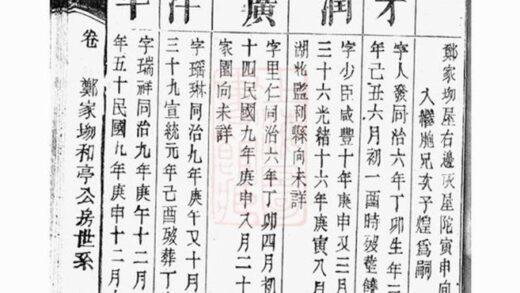 鄭家坳屋右邊灰屋陀寅申向
入繼胞兄次子煌為嗣
才
字人發同治六年丁卯生年三
年己丑六月初一酉時歿塟
潤
字少臣咸豐十年庚申又三月
三十六光緒十六年庚寅八月
湖北監利縣向未詳
廣
字里仁同治六年丁卯四月初
十四民國九年庚申八月二十
家園向未詳
字瑤琳同治九年庚午又十月
三十九宣統元年己酉歿葬丁
字瑞祥同治九年庚午十二月
年五十民國九年庚申十二月
卷 鄭家坳和亭公房世系